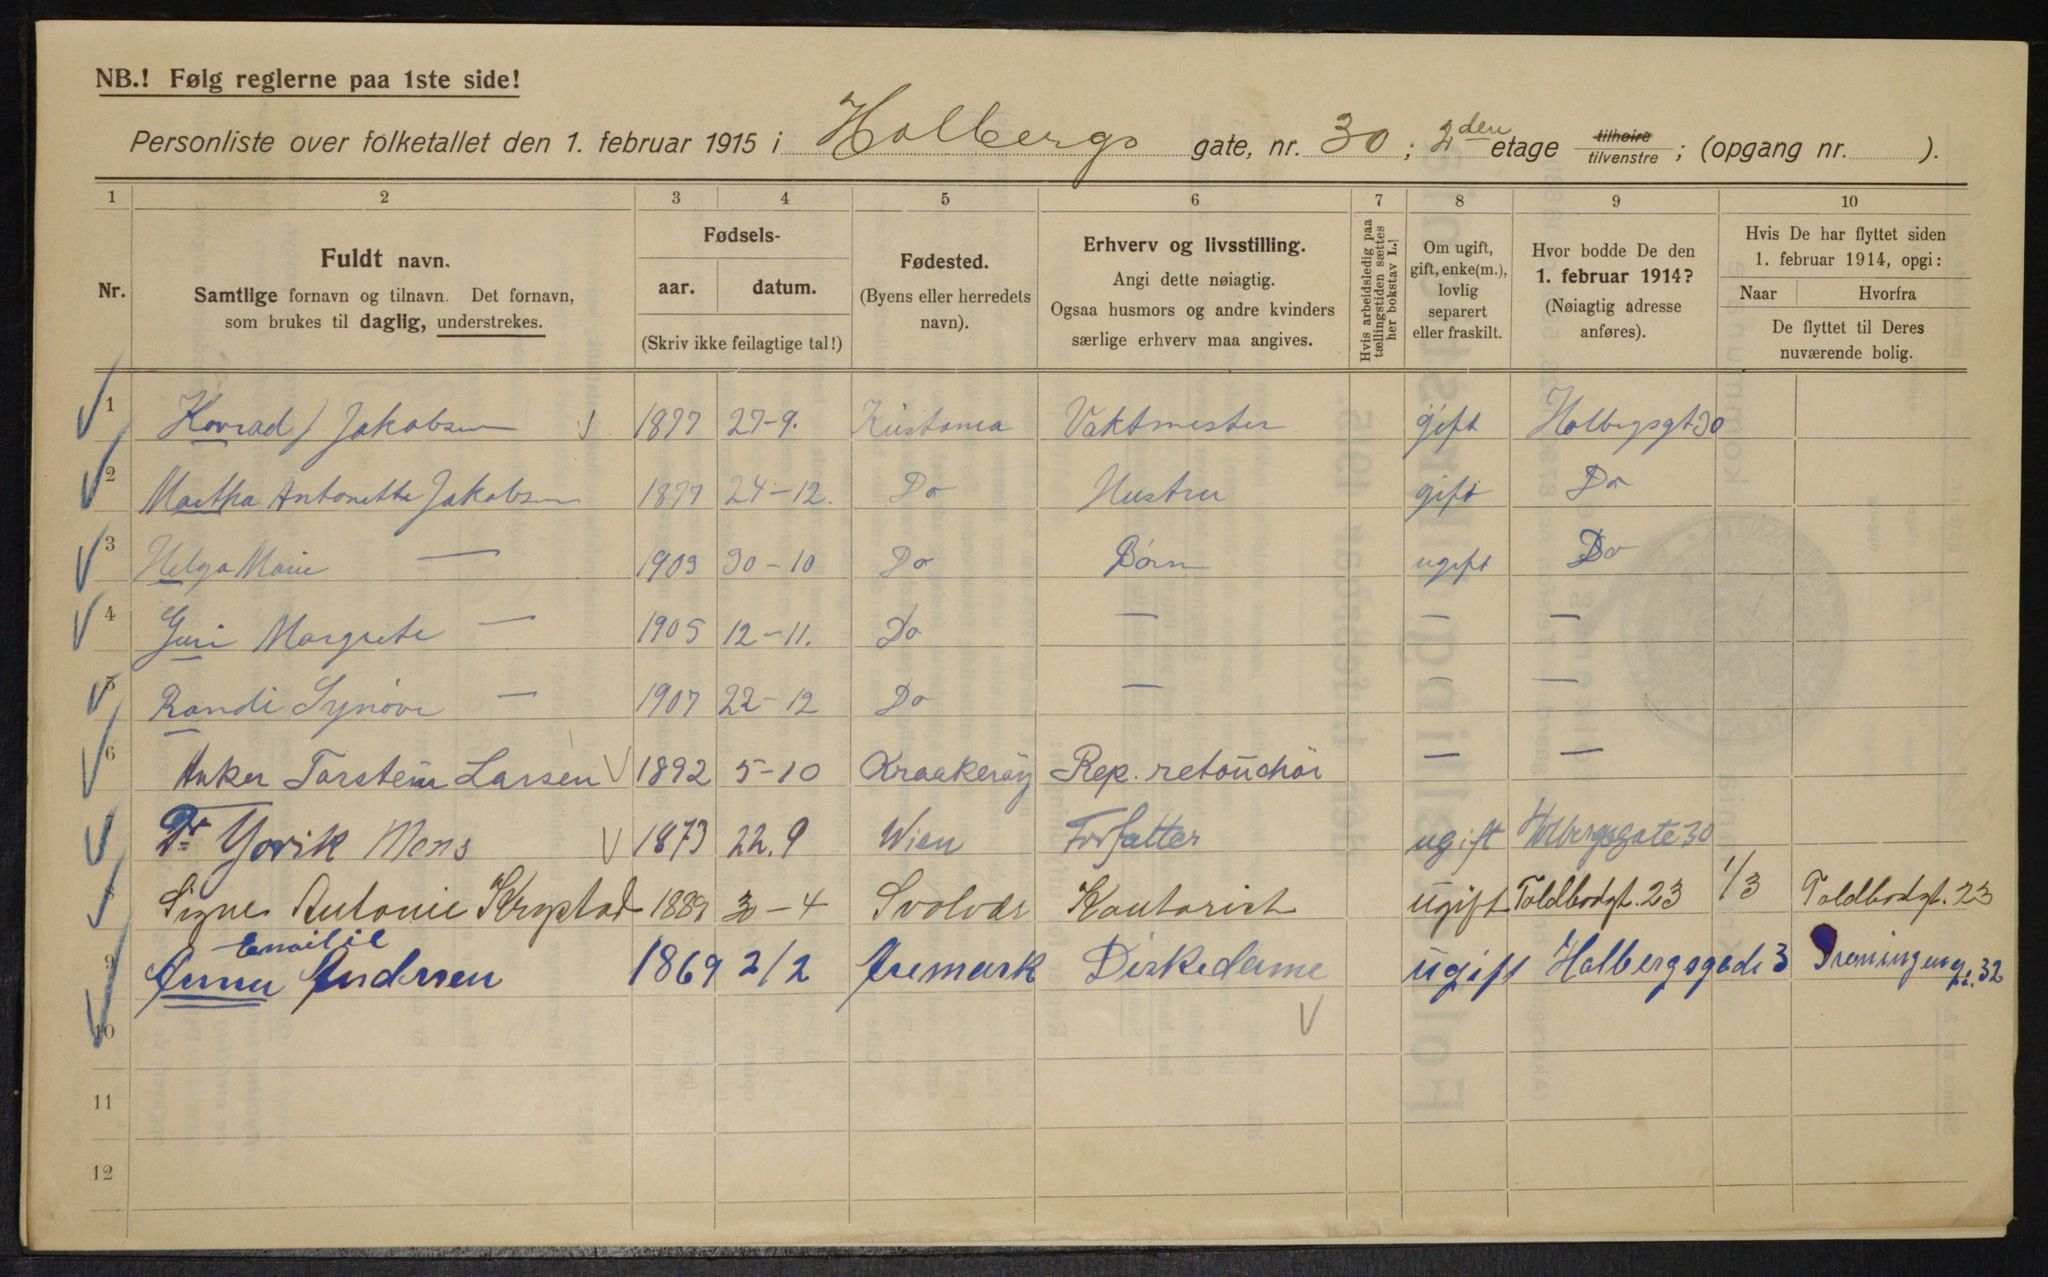 NB.! Følg reglerne paa 1ste side!
Personliste over folketallet den 1. februar 1915 i Holbergs gate, nr. 30; 2den etage tilhøire tilvenstre; (opgang nr. ).
1 2 3 4 5 6 7 8 9 10
Nr.
Fuldt navn.
Samtlige fornavn og tilnavn. Det fornavn,
som brukes til daglig, understrekes.
Fødsels-
aar. datum.
(Skriv ikke feilagtige tal!)
Fødested.
(Byens eller herredets
navn).
Erhverv og livsstilling.
Angi dette nøiagtig.
Ogsaa husmors og andre kvinders
særlige erhverv maa angives.
Hvis arbeidsledig paa
tællingstiden sættes
her bokstav L.
Om ugift,
gift, enke(m.),
lovlig
separert
eller fraskilt.
Hvor bodde De den
1. februar 1914?
(Nøiagtig adresse
anføres).
Hvis De har flyttet siden
1. februar 1914, opgi:
Naar Hvorfra
De flyttet til Deres
nuværende bolig.
1 Konrad J Jakobsen 1877 27-9. Kristania Vaktmester gift Holbergsgt 30
2 Martha Antonette Jakobsen 1877 24-12. Do Hustru gift Do
3 Helga Marie — 1903 30-10 Do Børn ugift Do
4 Guri Margrete — 1905 12-11. Do — — —
5 Randi Synøve — 1907 22-12 Do — — —
6 Anker Torstein Larsen 1892 5-10 Kraakerøy Rep. retouchør — —
Dr Yorik Mons 1873 22.9 Wien Forfatter ugift Holbergsgate 30
8 Signe Antonie 1889 30-4 Svolvær Kontorist ugift Toldbodgt. 23 1/3 Toldbodgt. 23
Emilie
9 Anna Andersen 1869 2/2 Aremark Diskedame ugift Holbergsgade 3 32
10
11
12